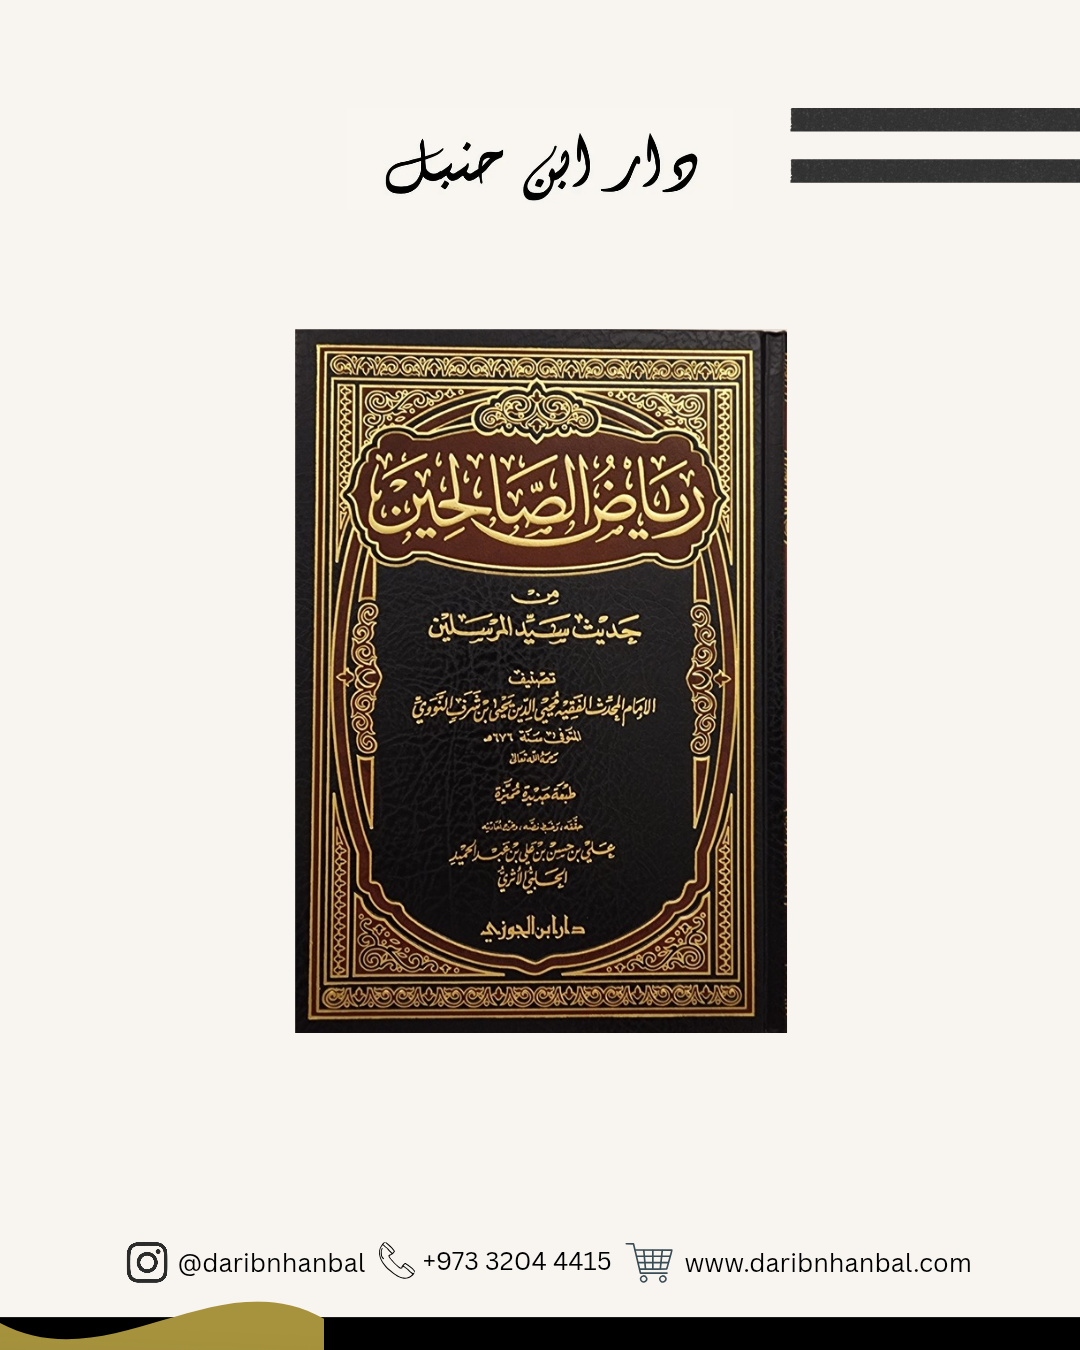 دار ابن حنبل
رياض الصالحين
من
حديث سيد المرسلين
تصنيف
الإمام المحدث الفقيه محيي الدين يحيى بن شرف النووي
المتوفى سنة ٦٧٦هـ
رحمه الله تعالى
طبعة جديدة مميزة
حققه، وضبط نصه، وخرج أحاديثه
علي بن حسن بن علي بن عبد الحميد
الحلبي الأثري
دار ابن الجوزي
@daribnhanbal +973 3204 4415 www.daribnhanbal.com